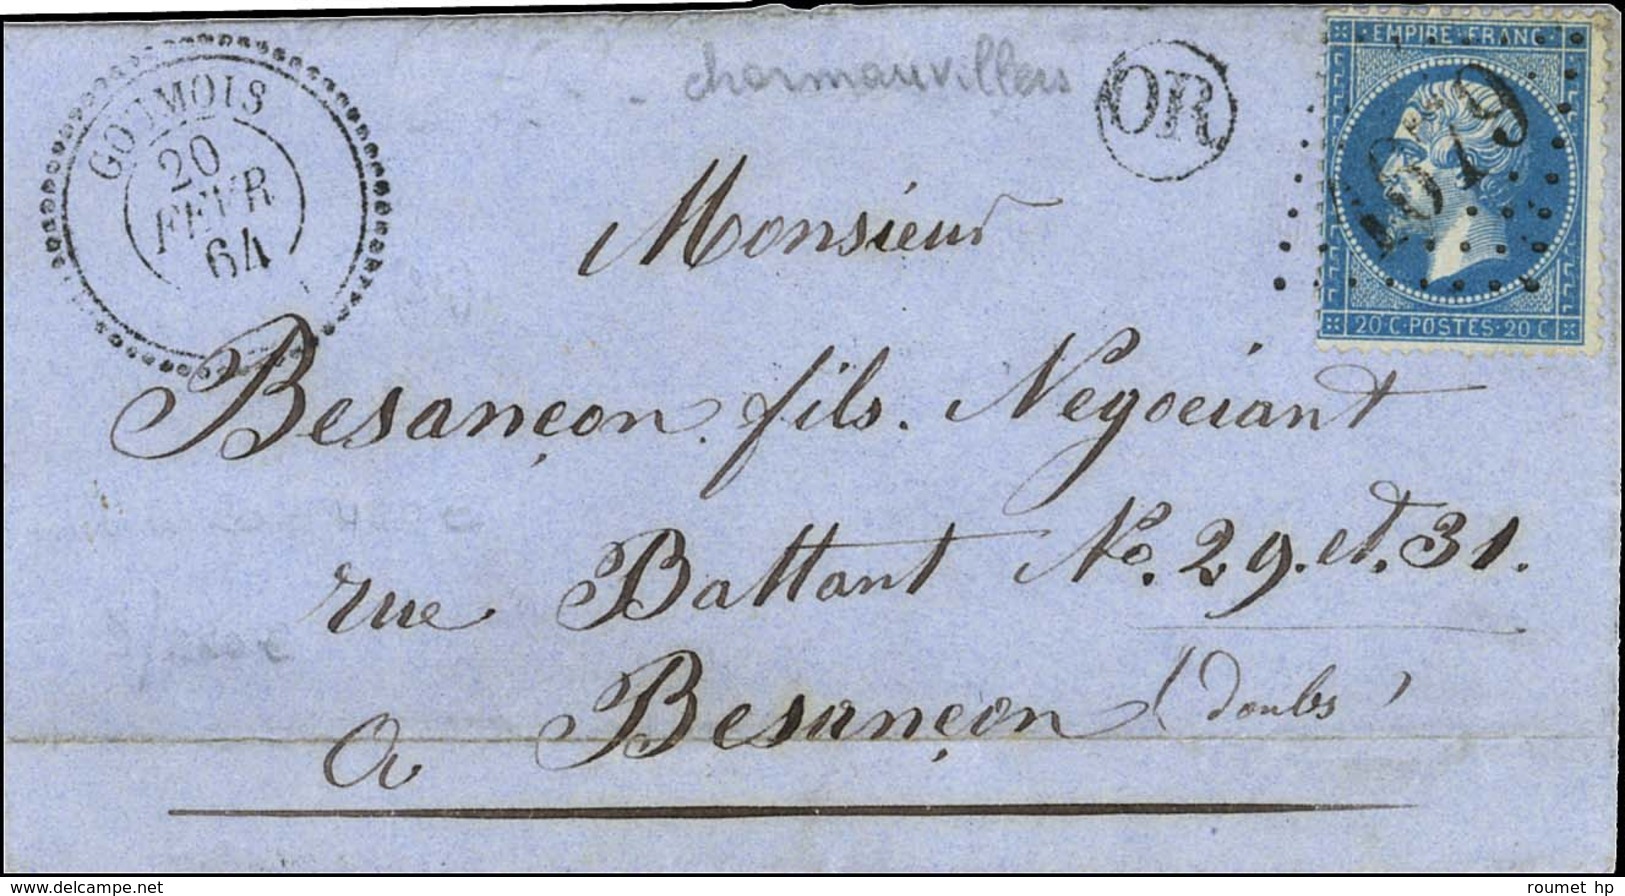 GOUMOIS
20
FEVR
64
charmauvillers
OR
EMPIRE·FRANC·
1679
20 C·POSTES·20 C
Monsieur
Besançon. fils. Negociant
rue Battant No. 29. et. 31.
a Besançon (doubs)
roumet hp